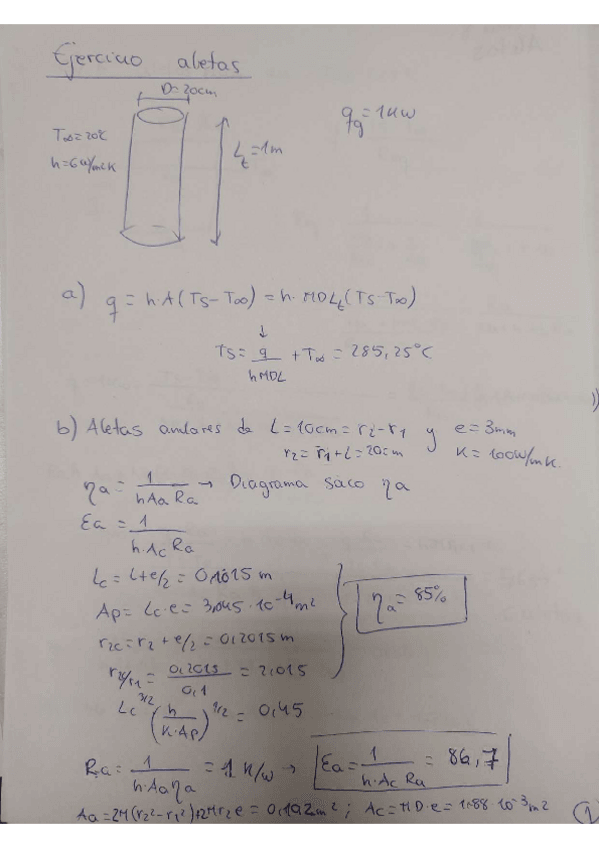 Ejercicio aletas
D=20cm
T∞=20°C
h=6W/m²K
Lt=1m
qg=1KW
a) q = h·A(Ts-T∞) = h·πDLt(Ts-T∞)
↓
Ts = q/hπDL + T∞ = 285,25°C
b) Aletas anulares de L=10cm=r2-r1 y e=3mm
r2=r1+L=20cm K=100W/mK.
ηa = 1/hAaRa → Diagrama saco ηa
Ea = 1/h·AcRa
Lc = L+e/2 = 0,1015 m
Ap = Lc·e = 3,045·10⁻⁴ m²
r2c = r2 + e/2 = 0,2015 m
r2c/r1 = 0,2015/0,1 = 2,015
Lc^3/2 (h/K·Ap)^1/2 = 0,45
ηa = 85%
Ra = 1/h·Aaηa = 1 K/W → Ea = 1/h·Ac Ra = 86,7
Aa = 2π(r2²-r1²)+2πr2e = 0,192m² ; Ac = πD·e = 1,88 10⁻³m²
1